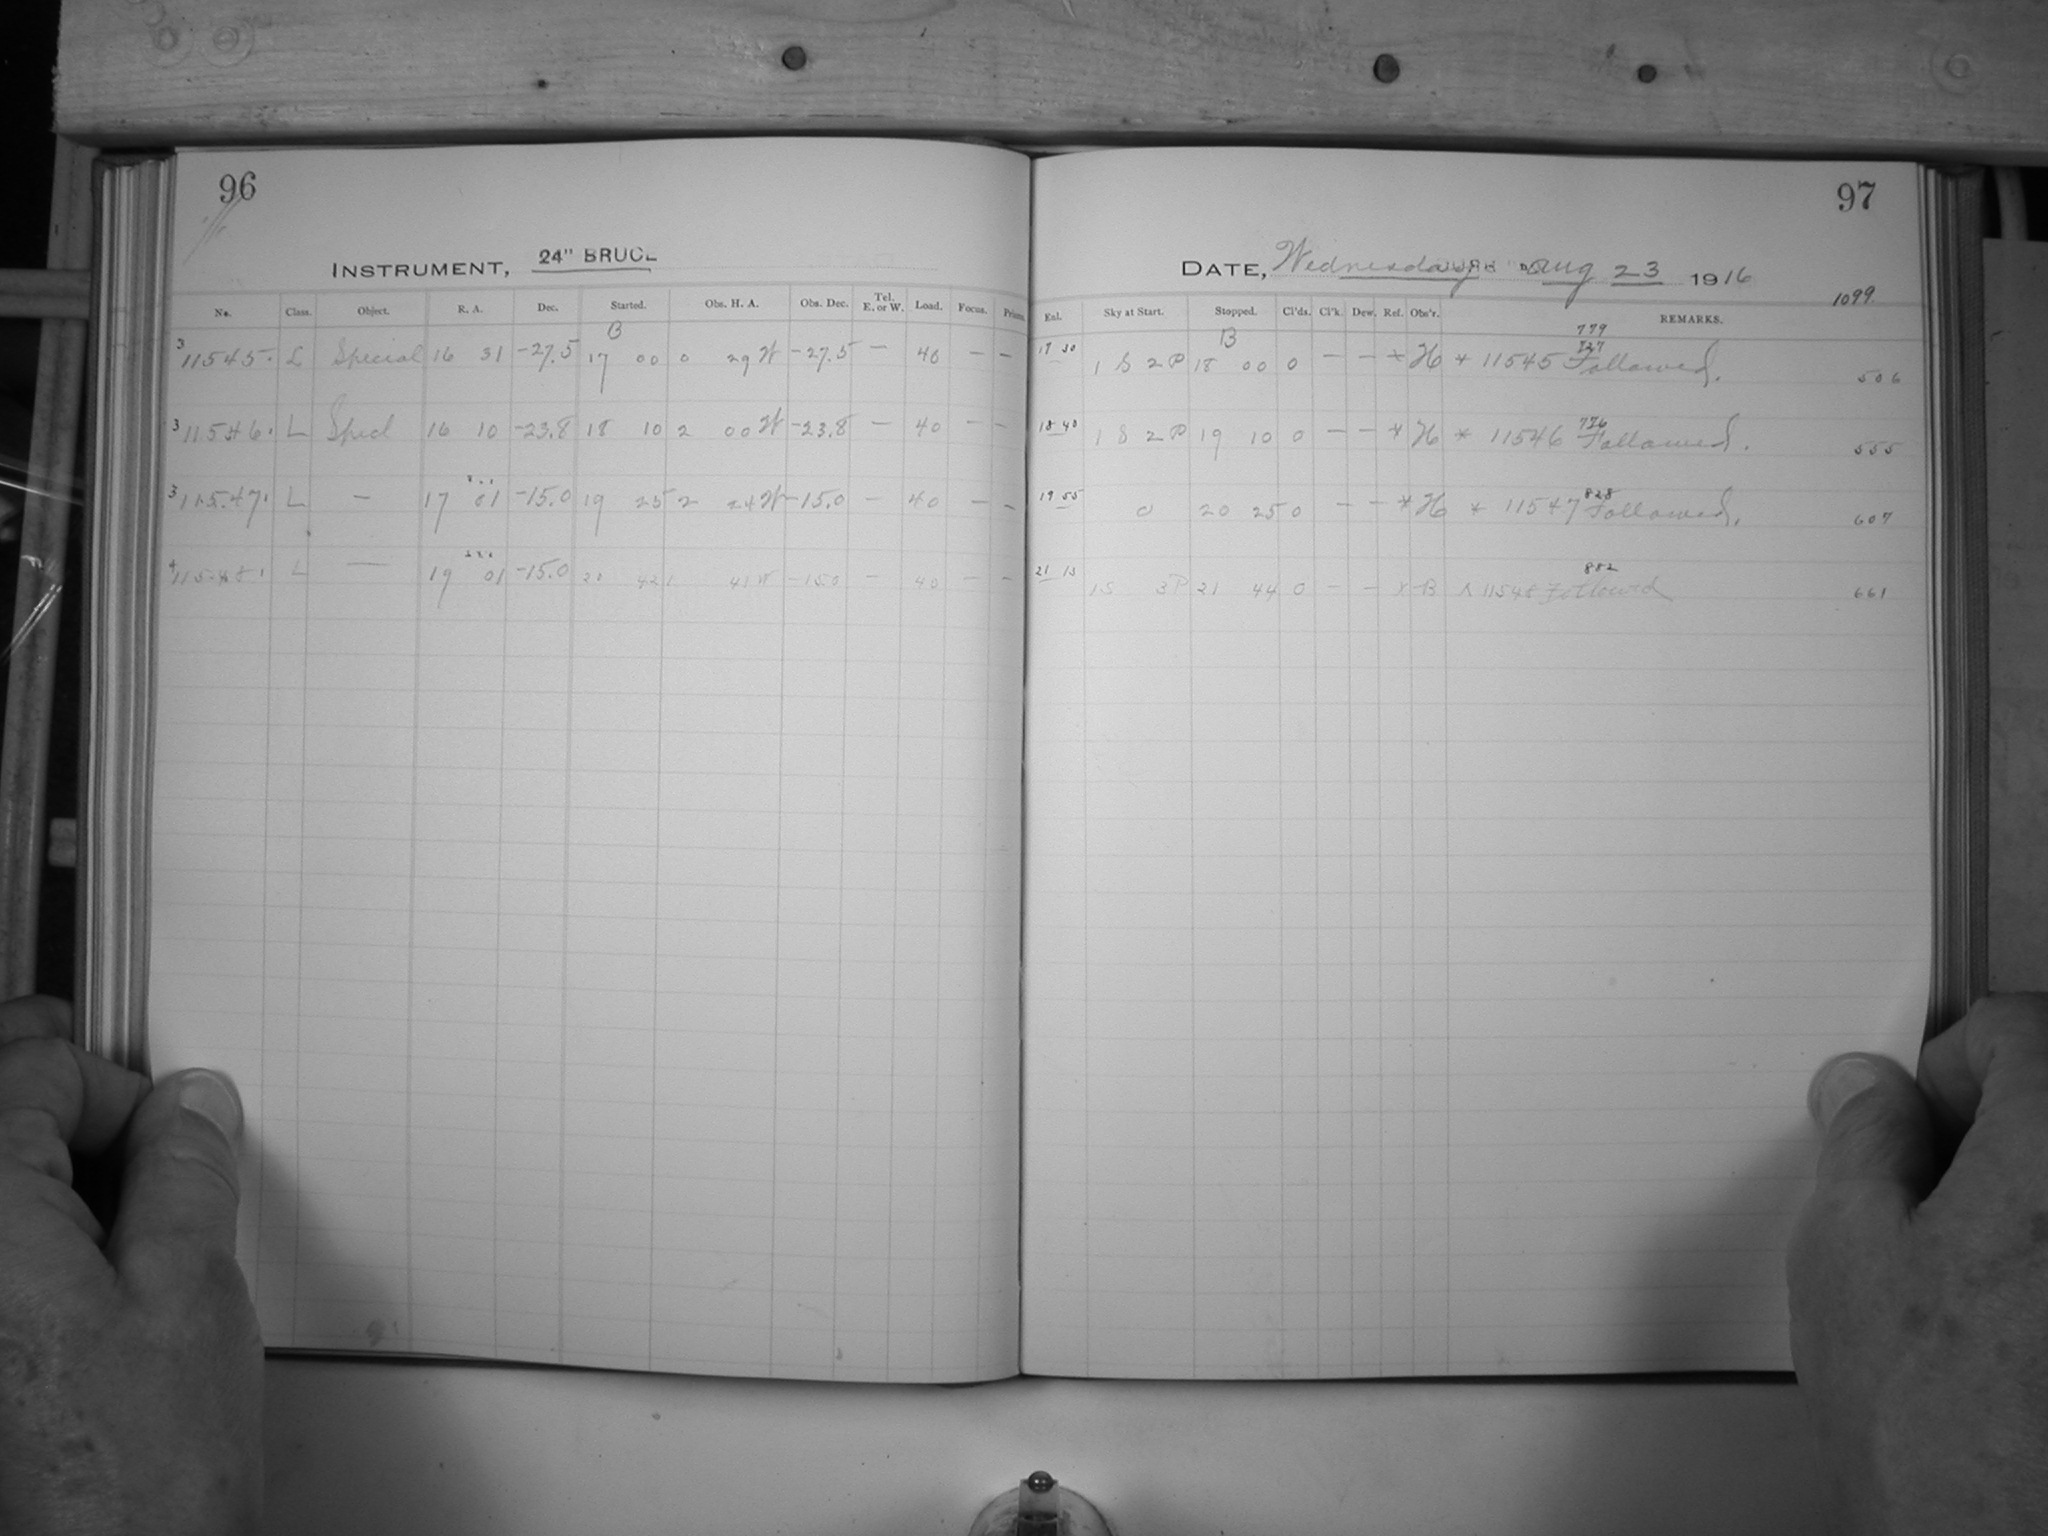 96
INSTRUMENT, 24" BRUCE
No. Class. Object. R. A. Dec. Started. Obs. H. A. Obs. Dec. Tel. E. or W. Load. Focus. Prism.
B
3 11545. L Special 16 31 -27.5 17 00 0 29 W -27.5 — 40 — —
3 11546. L Specl 16 10 -23.8 18 10 2 00 W -23.8 — 40 — —
3 11547. L — 17 01 -15.0 19 25 2 24 W -15.0 — 40 — —
4 11548. L — 19 01 -15.0 21 42 1 41 W -15.0 — 40 — —
97
DATE, Wednesday Aug 23 1916
1099
Eal. Sky at Start. Stopped. Cl'ds. Cl'k. Dew. Ref. Obs'r. REMARKS.
B 779
17 30 1 S 2 P 18 00 0 — — * H * 11545 727 Followed. 506
18 40 1 S 2 P 19 10 0 — — * H * 11546 776 Followed. 555
19 55 0 20 25 0 — — * H * 11547 828 Followed. 607
21 13 1S 3P 21 44 0 — — x B x 11548 882 Followed 661